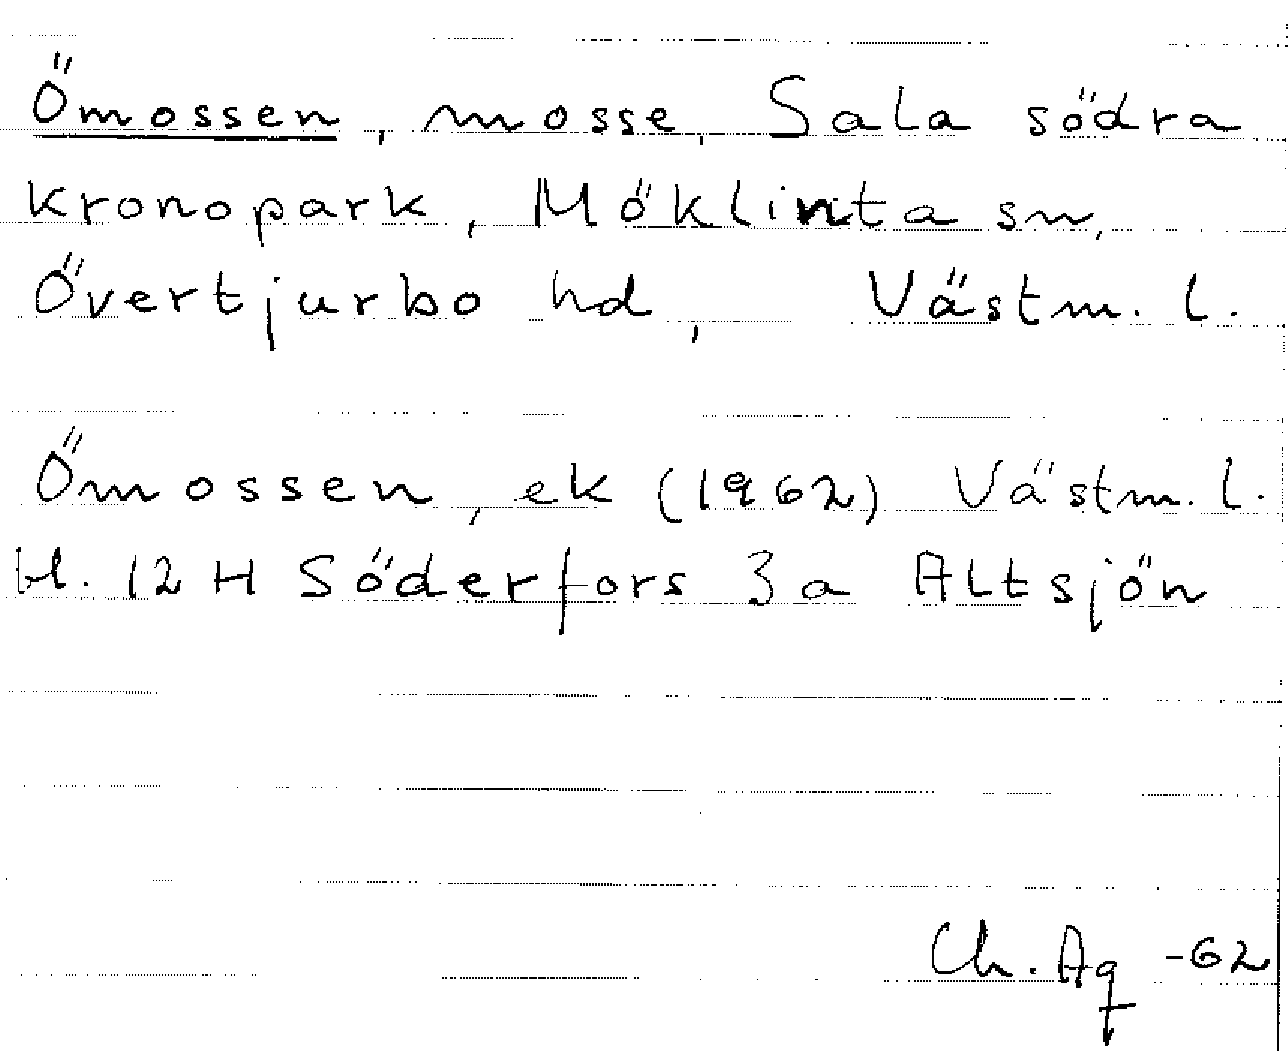 Ömossen, mosse, Sala södra
kronopark, Möklinta sn,
Övertjurbo hd, Västm. l.
Ömossen, ek (1962) Västm. l.
bl. 12 H Söderfors 3 a Altsjön
Ch. Aq -62